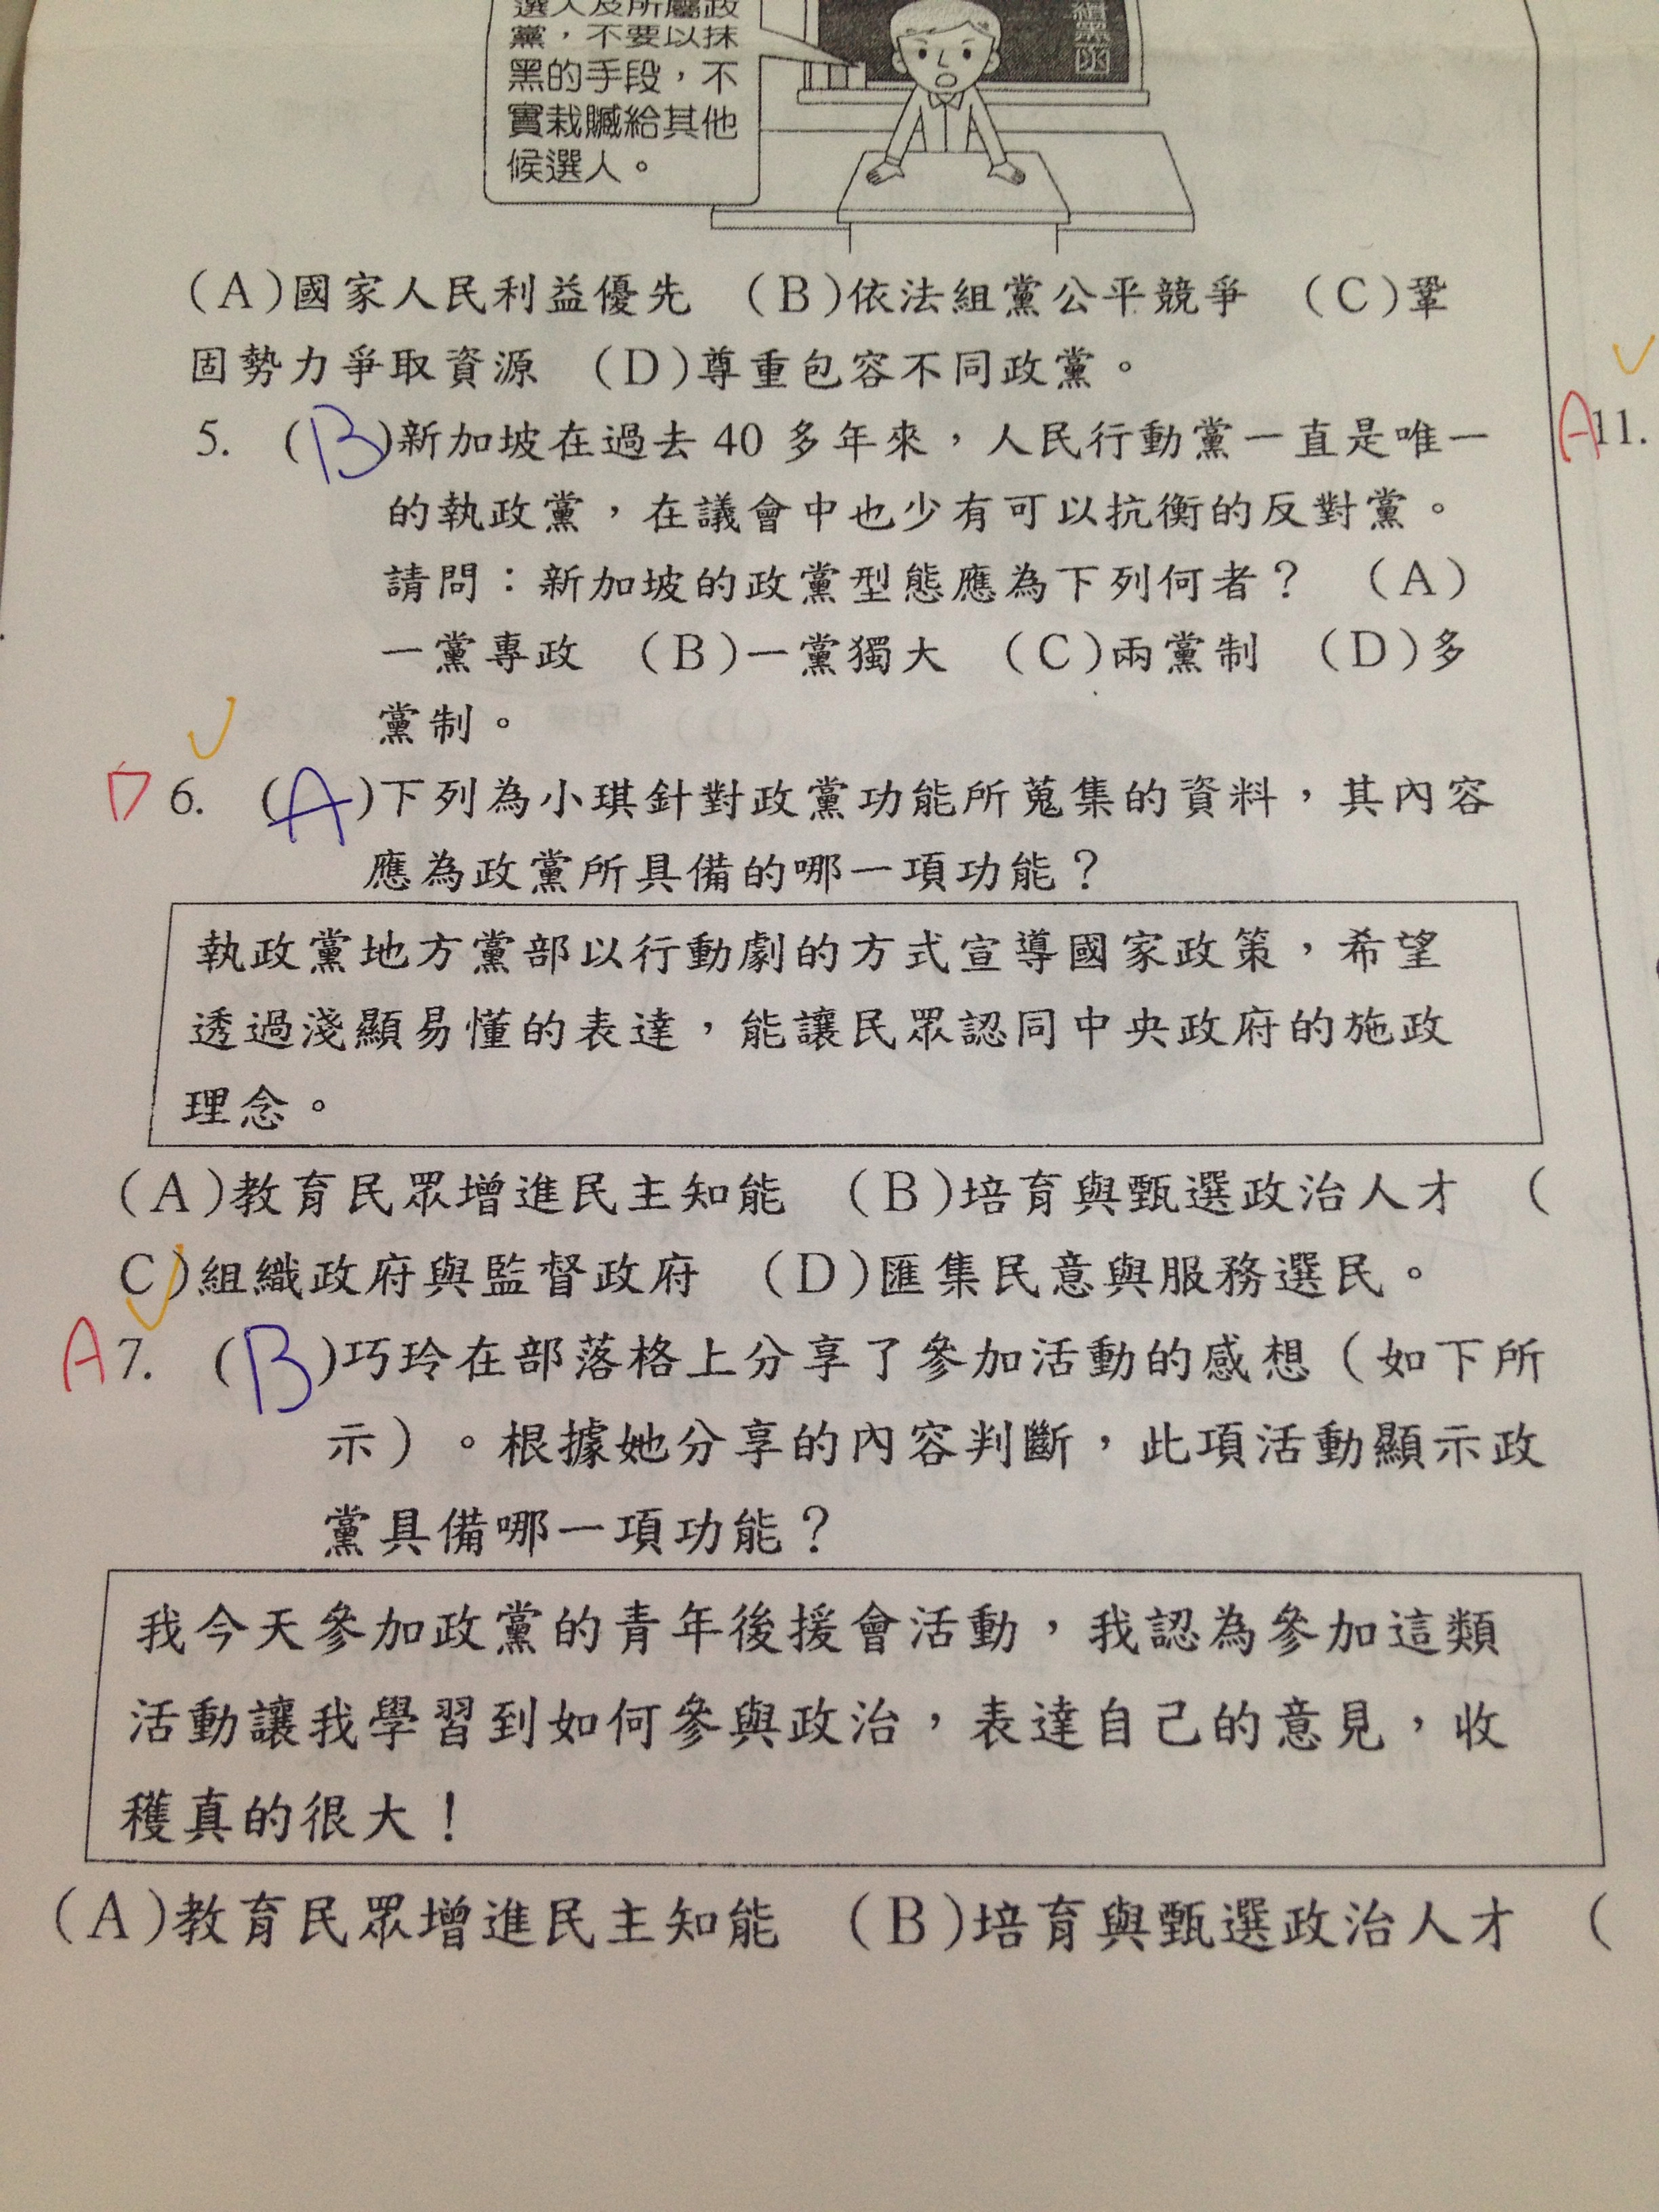 選人及所屬政
黨，不要以抹
黑的手段，不
實栽贓給其他
候選人。
黑函
(A)國家人民利益優先 (B)依法組黨公平競爭 (C)鞏
固勢力爭取資源 (D)尊重包容不同政黨。
5. (B)新加坡在過去40多年來，人民行動黨一直是唯一
的執政黨，在議會中也少有可以抗衡的反對黨。
請問：新加坡的政黨型態應為下列何者？ (A)
一黨專政 (B)一黨獨大 (C)兩黨制 (D)多
黨制。
D 6. (A)下列為小琪針對政黨功能所蒐集的資料，其內容
應為政黨所具備的哪一項功能？
執政黨地方黨部以行動劇的方式宣導國家政策，希望
透過淺顯易懂的表達，能讓民眾認同中央政府的施政
理念。
(A)教育民眾增進民主知能 (B)培育與甄選政治人才 (
C)組織政府與監督政府 (D)匯集民意與服務選民。
A 7. (B)巧玲在部落格上分享了參加活動的感想（如下所
示）。根據她分享的內容判斷，此項活動顯示政
黨具備哪一項功能？
我今天參加政黨的青年後援會活動，我認為參加這類
活動讓我學習到如何參與政治，表達自己的意見，收
穫真的很大！
(A)教育民眾增進民主知能 (B)培育與甄選政治人才 (
A 11.